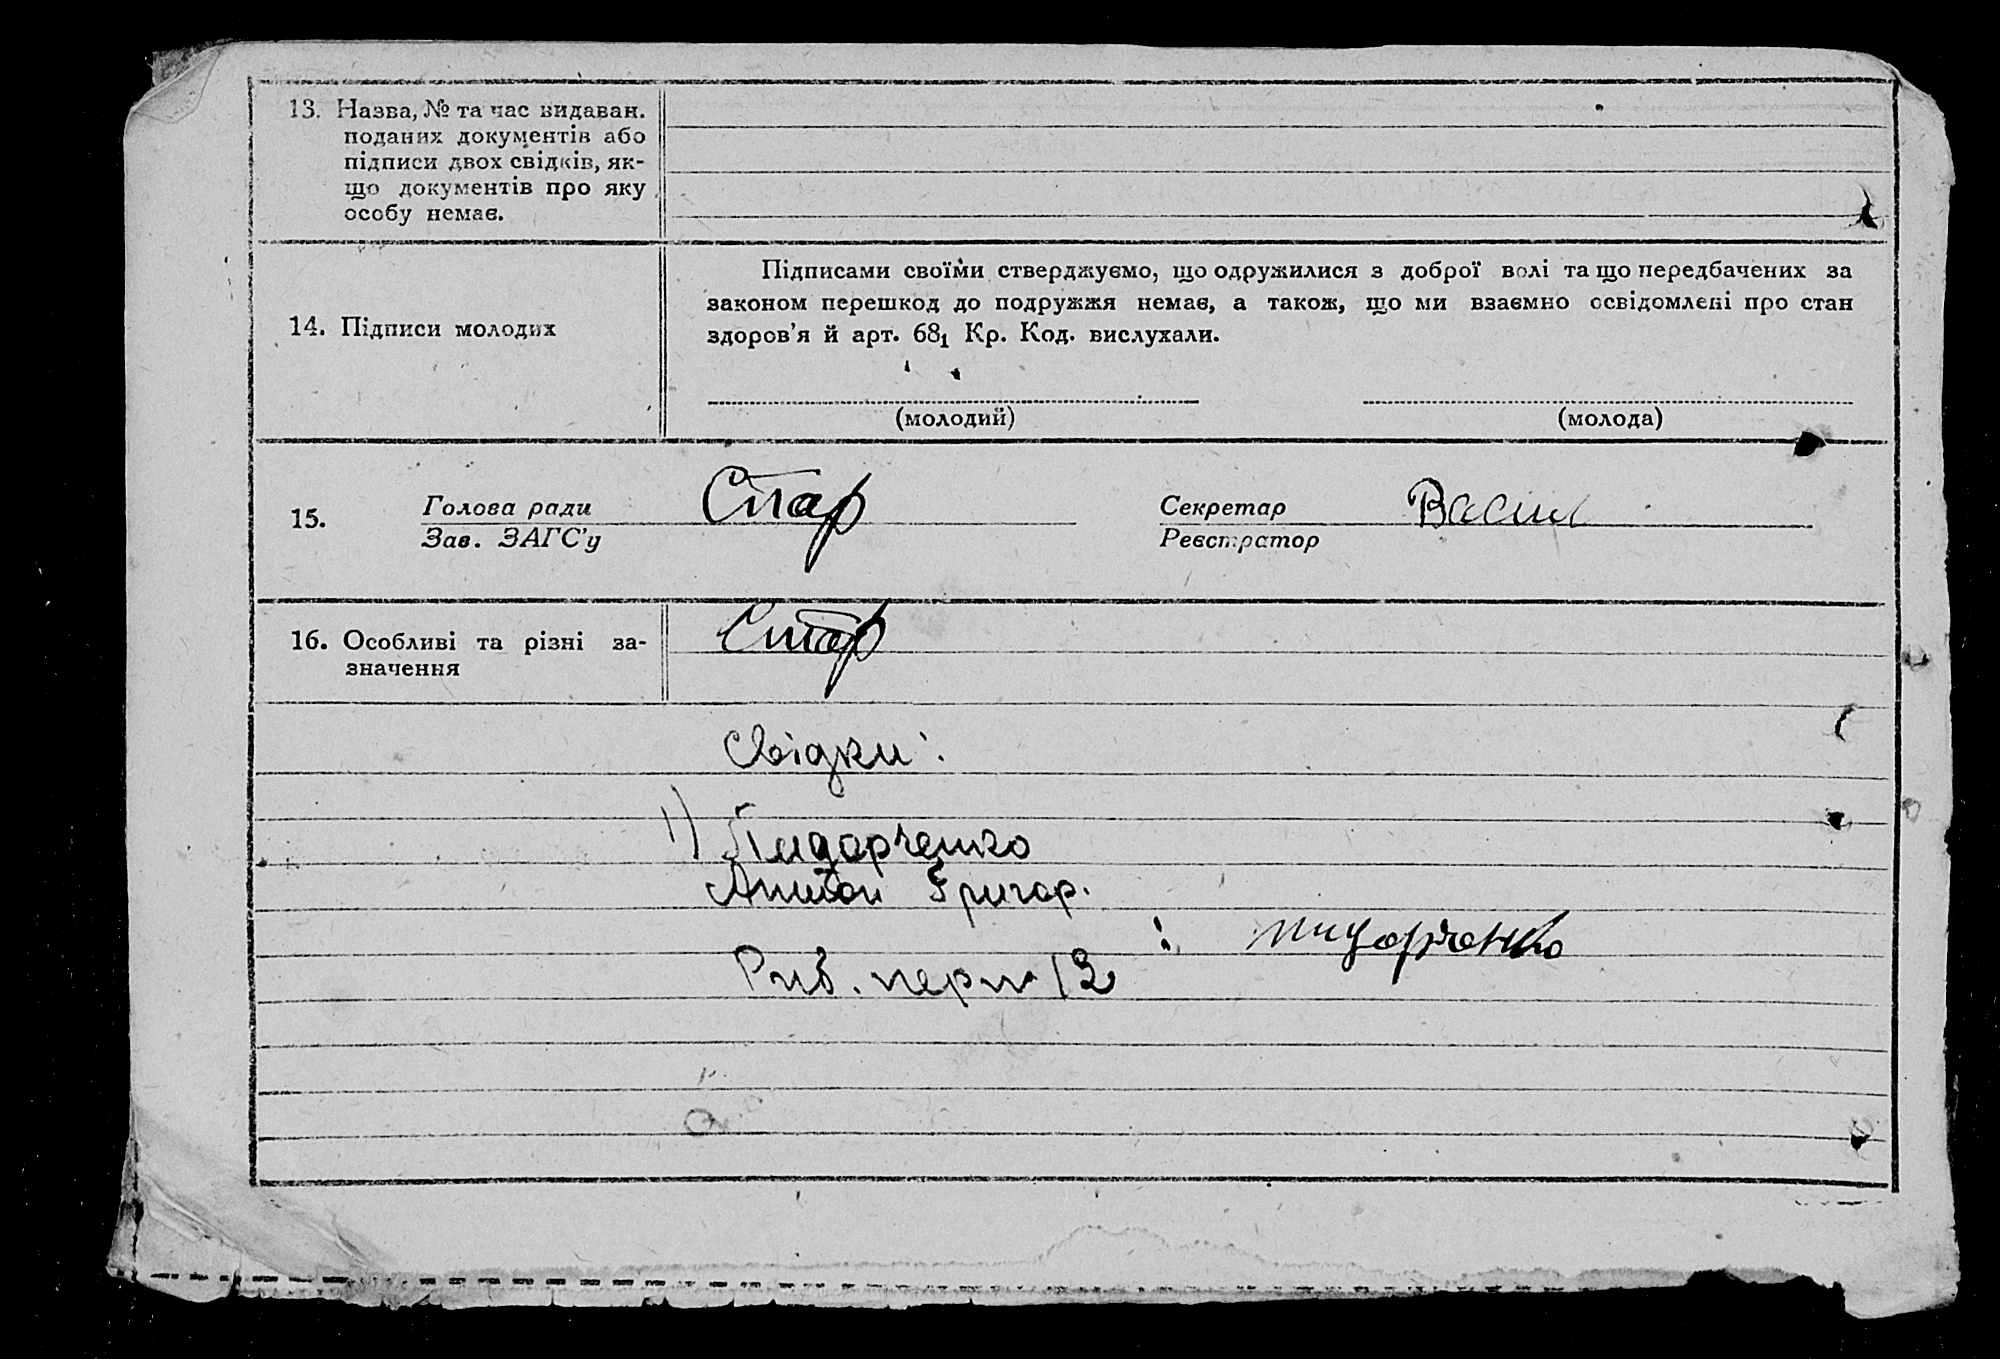 13. Назва, № та час видаван.
поданих документів або
підписи двох свідків, як-
що документів про яку
особу немає.
14. Підписи молодих
Підписами своїми стверджуємо, що одружилися з доброї волі та що передбачених за
законом перешкод до подружжя немає, а також, що ми взаємно освідомлені про стан
здоров'я й арт. 68₁ Кр. Код. вислухали.
(молодий)
(молода)
15.
Голова ради
Зав. ЗАГС'у
Стар
Секретар
Реєстратор
Васил
16. Особливі та різні за-
значення
Стар
Свідки:
1) Пидорченко
Антон Григор.
Пидорченко
Риб. 13